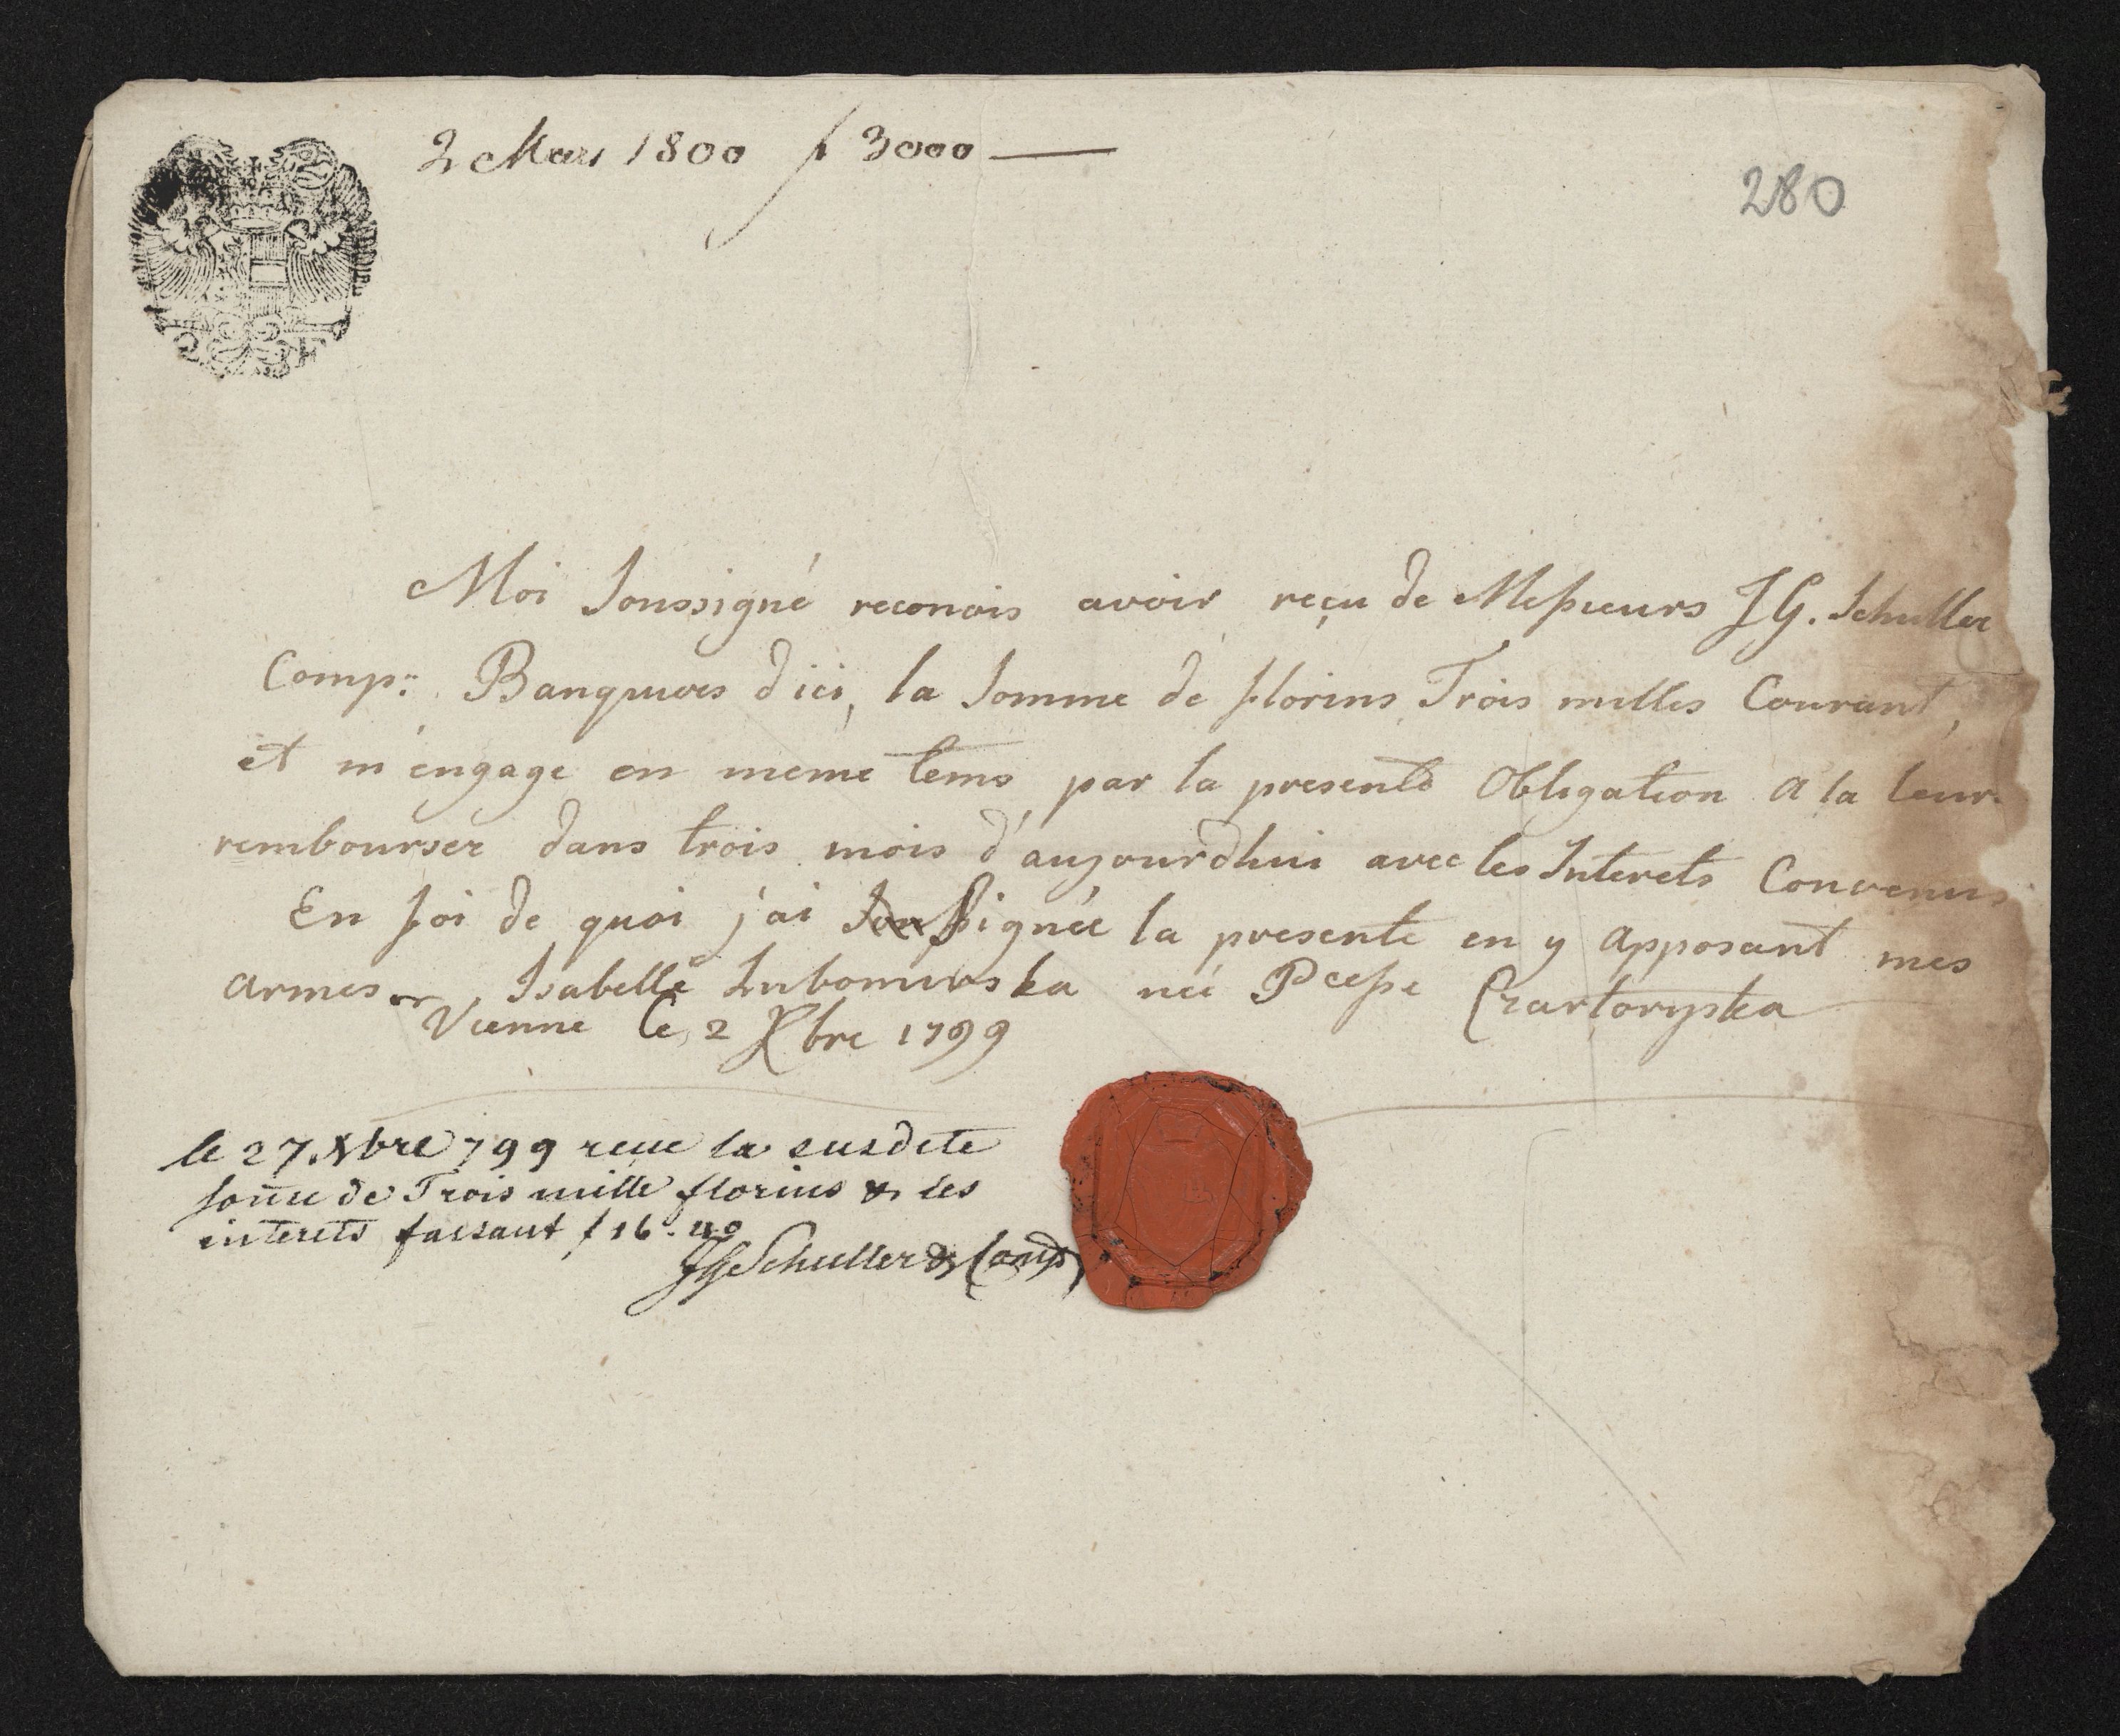 2 Mars 1800 f 3000 —
280
Moi Soussigné reconois avoir reçu de Messieurs J G. Schuller
Comp: Banquiers d'ici, la Somme de florins Trois milles Courant,
et m'engage en meme tems par la presente Obligation a la leur
rembourser dans trois mois d'aujourdhui avec les Interets Convenus
En foi de quoi j'ai Sousignée la presente en y apposant mes
armes Isabelle Lubomirska née Pcesse Czartoryska
Vienne le 2 Xbre 1799
le 27 Xbre 799 reçue la susdete
some de Trois mille florins & les
interets faisant f 16. 40
JGSchuller & Comp